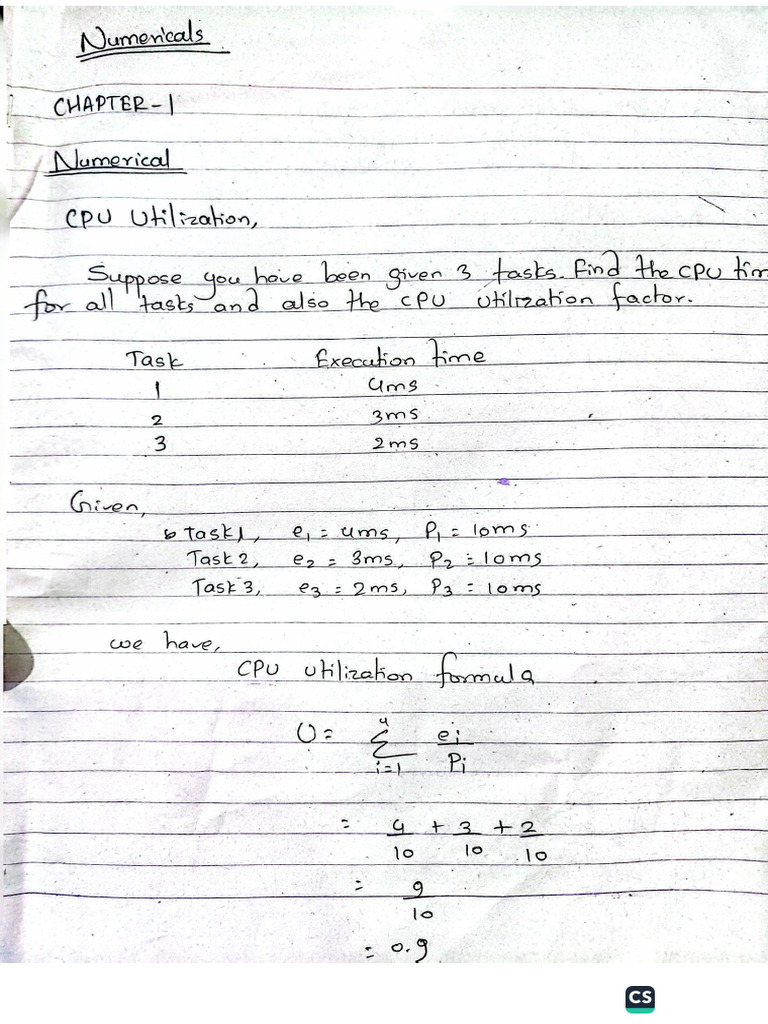 Numericals
CHAPTER-1
Numerical
CPU Utilization,
Suppose you have been given 3 tasks. Find the CPU tim
for all tasks and also the CPU utilization factor.
Task Execution time
1 4ms
2 3ms
3 2ms
Given,
Task1, e1 = 4ms, P1 = 10ms
Task 2, e2 = 3ms, P2 = 10ms
Task 3, e3 = 2ms, P3 = 10ms
we have,
CPU utilization formula
U = 4 Σ i=1 ei/Pi
= 4/10 + 3/10 + 2/10
= 9/10
= 0.9
CS